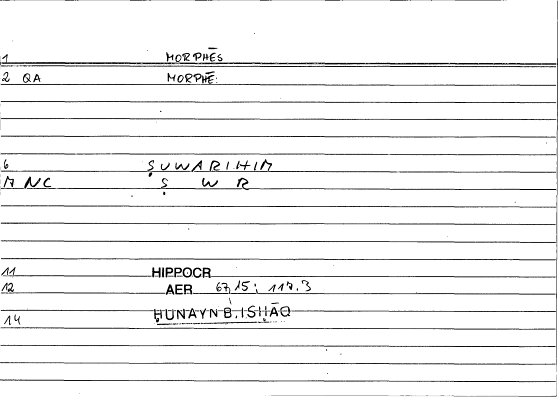 1 MORPHĒS
2 QA MORPHĒ:
6 ṢUWARIHIM
M NC Ṣ W R
11 HIPPOCR
12 AER 67,15; 117.3
14 ḤUNAYN B. ISḤĀQ